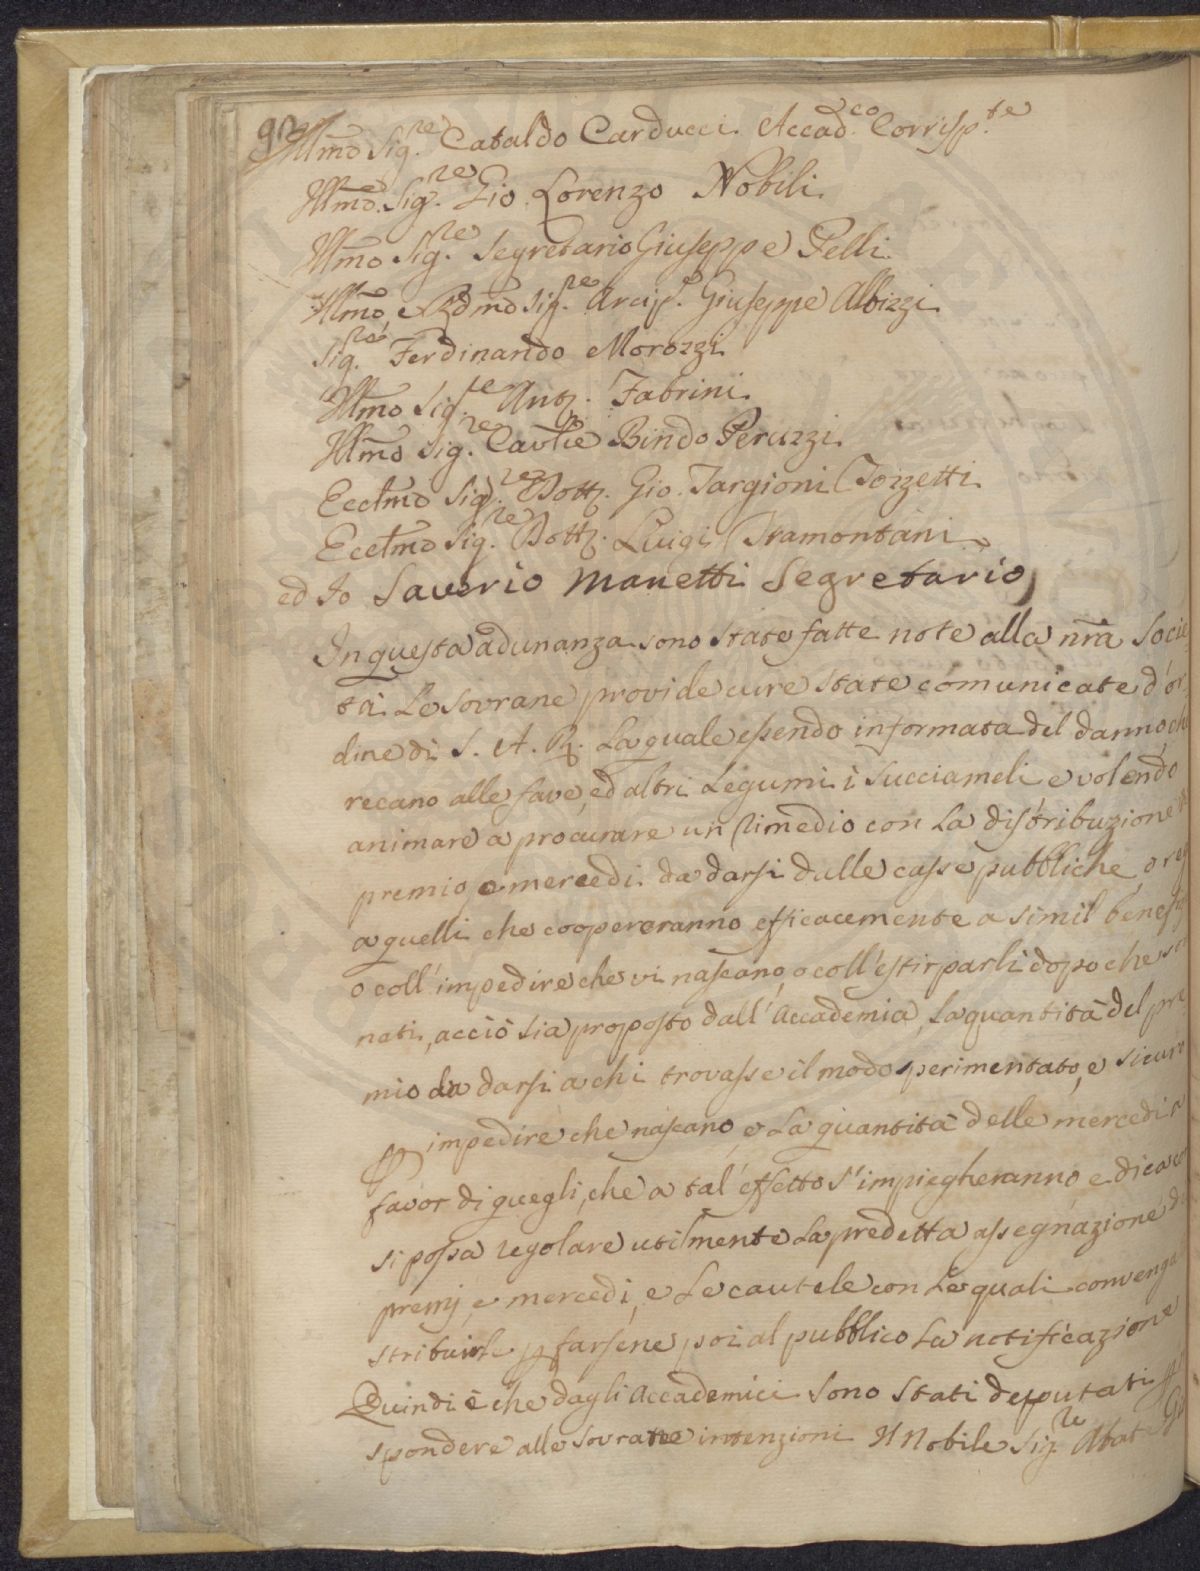 92
Illmo Sig.re Cataldo Carducci Accad.co Corrisp.te
Illmo. Sig.re Gio. Lorenzo Nobili.
Illmo Sig.re Segretario Giuseppe Pelli.
Illmo e Rdmo Sig.re Arcip. Giuseppe Albizzi
Sig.re Ferdinando Morozzi
Illmo Sig.re Anto. Fabrini.
Illmo Sig.re Cavlie Bindo Peruzzi.
Ecclmo Sig.re Dott. Gio. Targioni Tozzetti
Ecclmo Sig.re Dott. Luigi Tramontani
ed Io Saverio Manetti Segretario
In questa adunanza sono state fatte note alla nrà Socie-
tà Le sovrane provide cure state comunicate d'or-
dine di S. A. R. La quale essendo informata del danno che
recano alle fave, ed altri Legumi i Succiameli e volendo
animare a procurare un rimedio con La distribuzione
premio, o mercedi da darsi dalle casse pubbliche
a quelli che coopereranno efficacemente a simil
o coll'impedire che vi nascano, o coll'estirparli dopo che
nati, acciò sia proposto dall'Accademia, La quantità del pre
mio da darsi a chi trovasse il modo sperimentato, e sicuro
p impedire che nascano, e La quantità delle mercedi
favor di quegli, che a tal'effetto s'impiegheranno, e dica
si possa regolare utilmente La predetta assegnazione
premj, e mercedi, e Le cautele con Le quali convenga
stribuirle p farsene poi al pubblico La notificazione
Quindi è che dagli Accademici sono stati deputati
spondere alle sovrane intenzioni Il Nobile Sig.re Abat